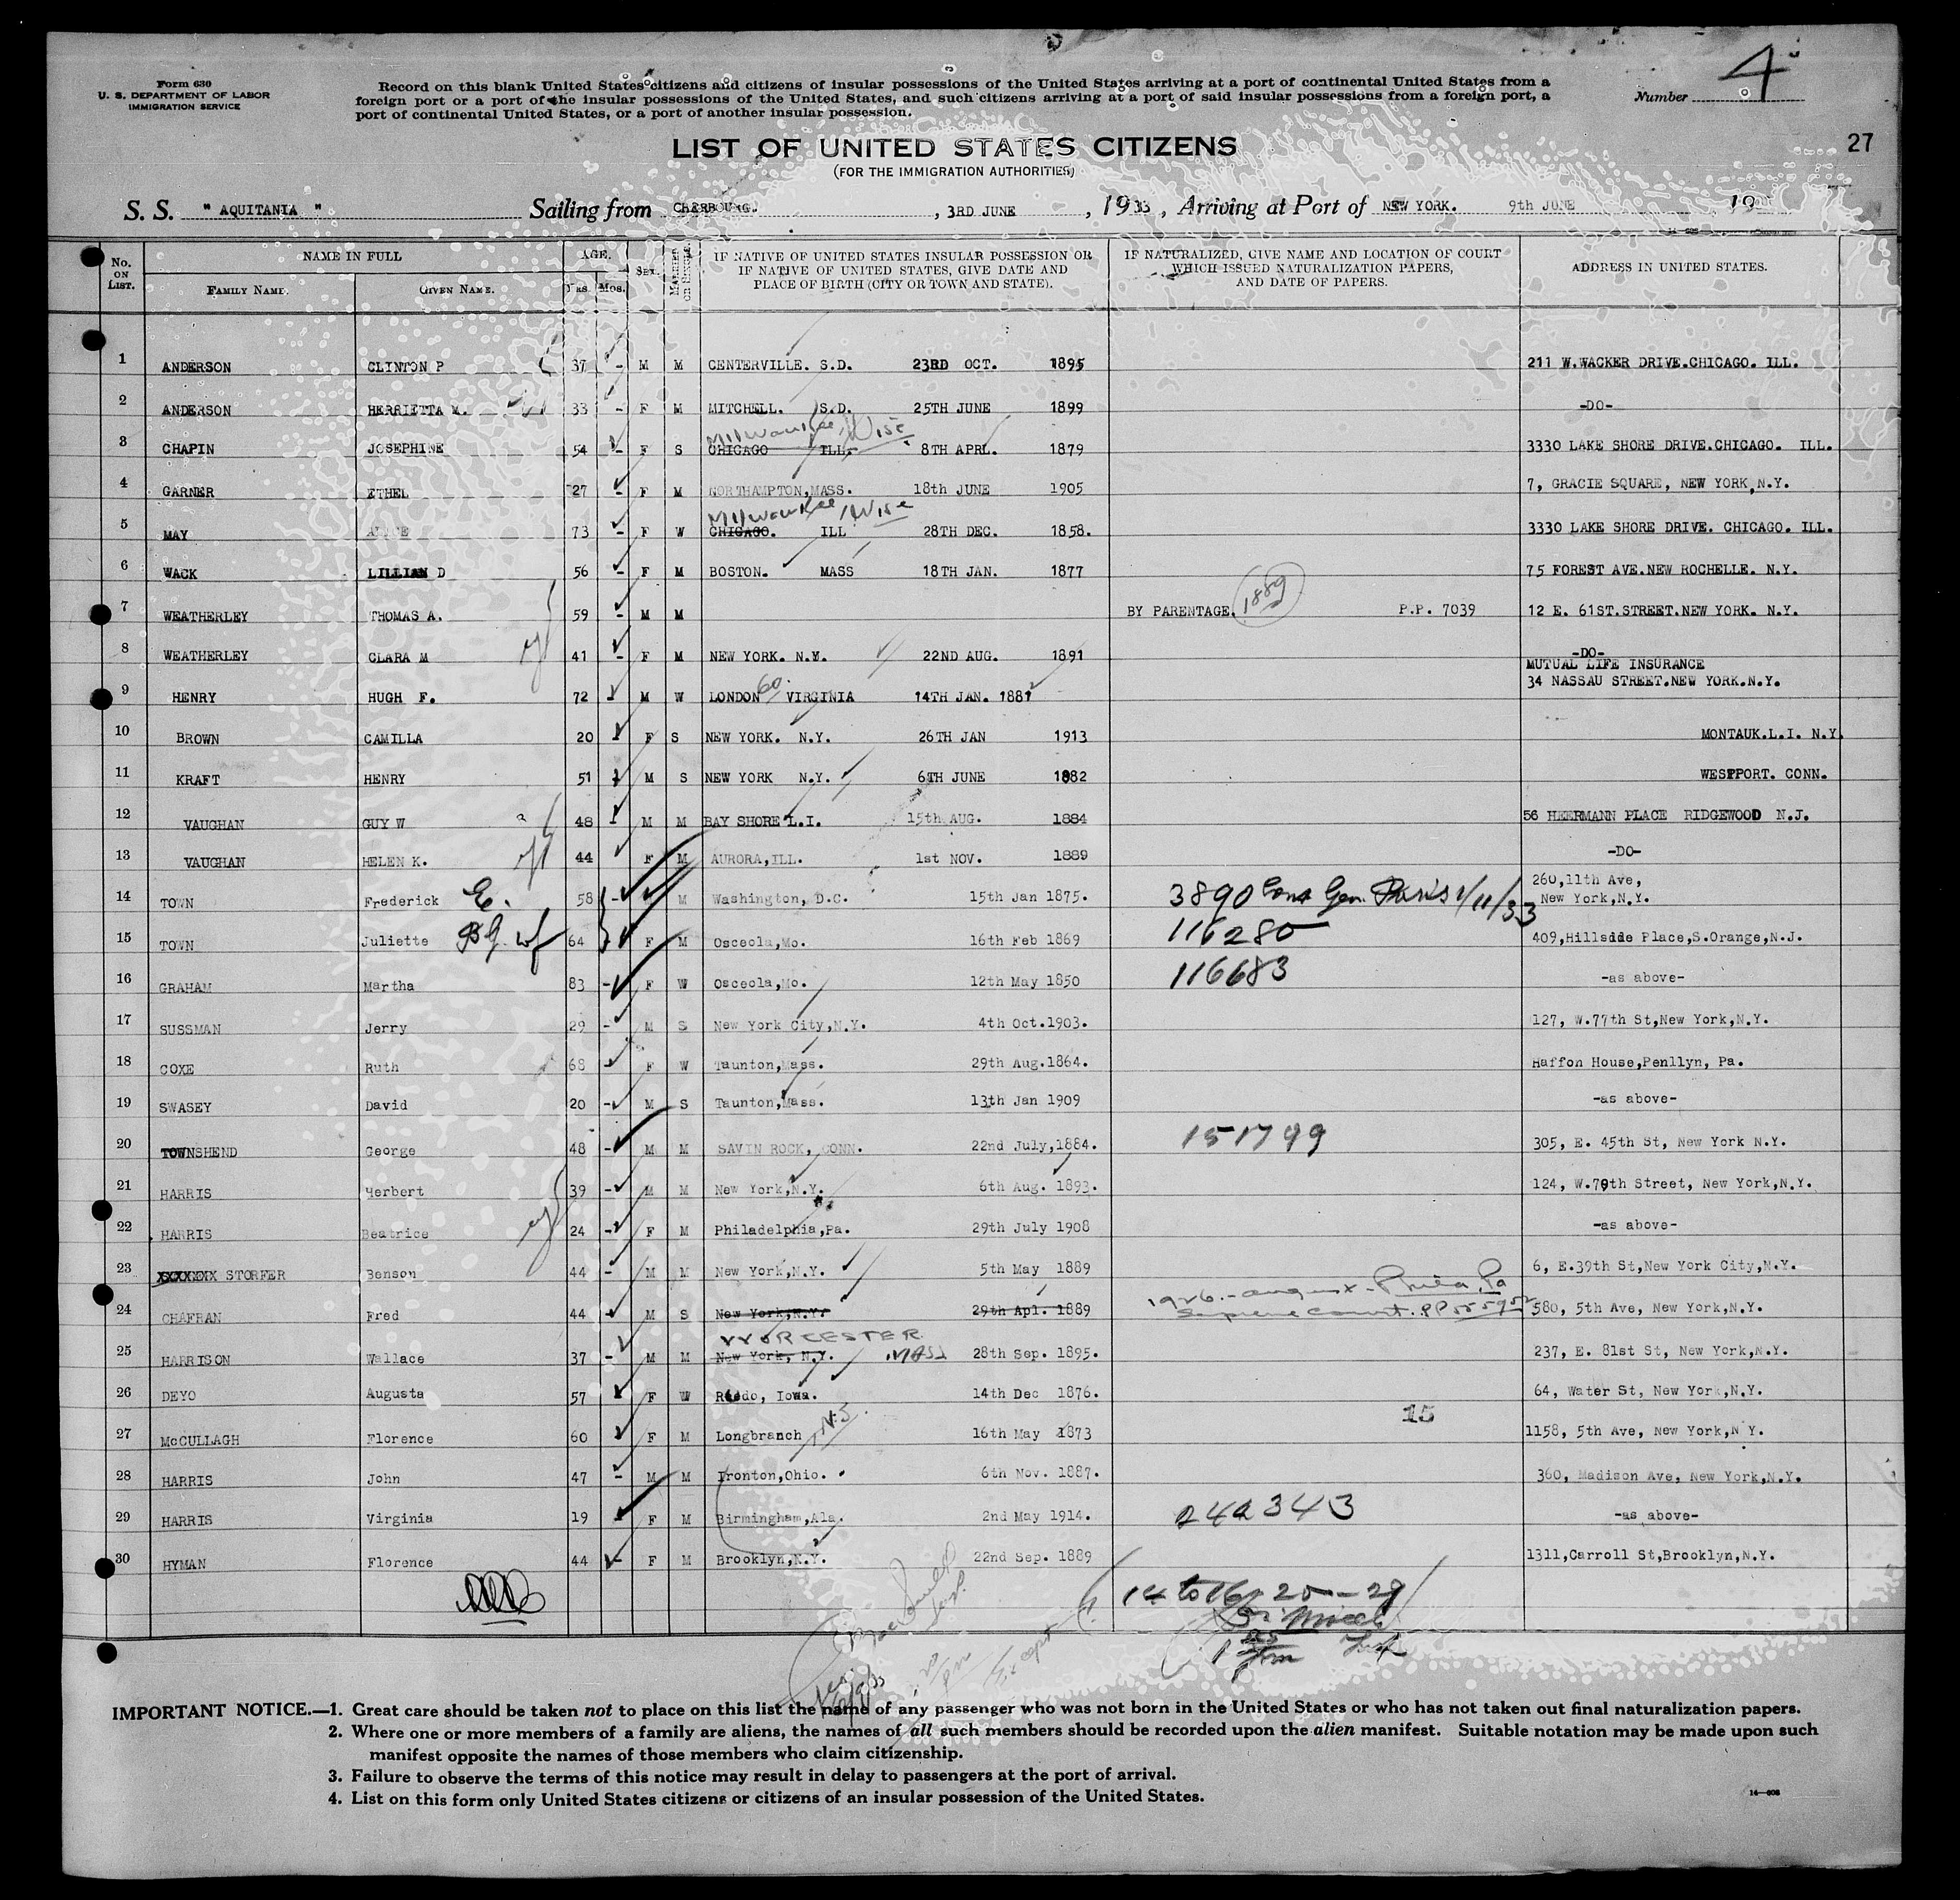 Form 630
U. S. DEPARTMENT OF LABOR
IMMIGRATION SERVICE
Record on this blank United States citizens and citizens of insular possessions of the United States arriving at a port of continental United States from a
foreign port or a port of the insular possessions of the United States, and such citizens arriving at a port of said insular possessions from a foreign port, a
port of continental United States, or a port of another insular possession.
Number 4
27
LIST OF UNITED STATES CITIZENS
(FOR THE IMMIGRATION AUTHORITIES)
S. S. " AQUITANIA " Sailing from CHERBOURG. , 3RD JUNE , 1933 , Arriving at Port of NEW YORK. 9th JUNE 19
No. ON LIST. NAME IN FULL FAMILY NAME. GIVEN NAME. AGE. Yrs. Mos. SEX. MARRIED OR SINGLE IF NATIVE OF UNITED STATES INSULAR POSSESSION OR IF NATIVE OF UNITED STATES, GIVE DATE AND PLACE OF BIRTH (CITY OR TOWN AND STATE). IF NATURALIZED, GIVE NAME AND LOCATION OF COURT WHICH ISSUED NATURALIZATION PAPERS, AND DATE OF PAPERS. ADDRESS IN UNITED STATES.
1 ANDERSON CLINTON P 37 - M M CENTERVILLE. S.D. 23RD OCT. 1895 211 W.WACKER DRIVE.CHICAGO. ILL.
2 ANDERSON HERRIETTA M. 33 - F M MITCHELL. S.D. 25TH JUNE 1899 -DO-
Milwaukee, Wisc
3 CHAPIN JOSEPHINE 54 - F S CHICAGO ILL. 8TH APRL. 1879 3330 LAKE SHORE DRIVE.CHICAGO. ILL.
4 GARNER ETHEL 27 - F M NORTHAMPTON,MASS. 18th JUNE 1905 7, GRACIE SQUARE, NEW YORK,N.Y.
Milwaukee, Wisc
5 MAY ALICE 73 - F W CHICAGO. ILL 28TH DEC. 1858. 3330 LAKE SHORE DRIVE. CHICAGO. ILL.
6 WACK LILLIAN D 56 - F M BOSTON. MASS 18TH JAN. 1877 75 FOREST AVE.NEW ROCHELLE. N.Y.
7 WEATHERLEY THOMAS A. 59 - M M BY PARENTAGE. 1889 P.P. 7039 12 E. 61ST.STREET.NEW YORK. N.Y.
8 WEATHERLEY CLARA M 41 - F M NEW YORK. N.Y. 22ND AUG. 1891 -DO-
MUTUAL LIFE INSURANCE
9 HENRY HUGH F. 72 - M W LONDON Co. VIRGINIA 14TH JAN. 1881 34 NASSAU STREET.NEW YORK.N.Y.
10 BROWN CAMILLA 20 - F S NEW YORK. N.Y. 26TH JAN 1913 MONTAUK.L.I. N.Y.
11 KRAFT HENRY 51 - M S NEW YORK N.Y. 6TH JUNE 1882 WESTPORT. CONN.
12 VAUGHAN GUY W 48 - M M BAY SHORE L.I. 15th AUG. 1884 56 HEERMANN PLACE RIDGEWOOD N.J.
13 VAUGHAN HELEN K. 44 F M AURORA,ILL. 1st NOV. 1889 -DO-
260,11th Ave,
14 TOWN Frederick E. 58 - M Washington, D.C. 15th Jan 1875. 3890 Cons Gen. Paris 1/11/33 New York,N.Y.
15 TOWN Juliette wf 64 F M Osceola,Mo. 16th Feb 1869 116280 409,Hillside Place,S.Orange,N.J.
16 GRAHAM Martha 83 - F W Osceola,Mo. 12th May 1850 116683 -as above-
17 SUSSMAN Jerry 29 - M S New York City,N.Y. 4th Oct.1903. 127, W.77th St,New York,N.Y.
18 COXE Ruth 68 - F W Taunton,Mass. 29th Aug.1864. Haffon House,Penllyn, Pa.
19 SWASEY David 20 - M S Taunton,Mass. 13th Jan 1909 -as above-
20 TOWNSHEND George 48 - M M SAVIN ROCK, CONN. 22nd July,1884. 151799 305, E. 45th St, New York N.Y.
21 HARRIS Herbert 39 - M M New York,N.Y. 6th Aug. 1893. 124, W.79th Street, New York,N.Y.
22 HARRIS Beatrice 24 - F M Philadelphia,Pa. 29th July 1908 -as above-
23 STORFER Benson 44 - M M New York,N.Y. 5th May 1889 6, E.39th St,New York City,N.Y.
1926.-august-Phila, Pa
24 CHAFRAN Fred 44 - M S New York,N.Y. 29th Apl. 1889 Supreme Court. PP 580, 5th Ave, New York,N.Y.
WORCESTER
25 HARRISON Wallace 37 - M M New York, N.Y. MASS 28th Sep. 1895. 237, E. 81st St, New York,N.Y.
26 DEYO Augusta 57 F W Iowa. 14th Dec 1876. 64, Water St, New York,N.Y.
15
27 McCULLAGH Florence 60 F M Longbranch N.J. 16th May 1873 1158, 5th Ave, New York,N Y.
28 HARRIS John 47 - M M Ironton,Ohio. 6th Nov. 1887. 360, Madison Ave, New York,N.Y.
29 HARRIS Virginia 19 - F M Birmingham,Ala. 2nd May 1914. 242343 -as above-
30 HYMAN Florence 44 - F M Brooklyn,N.Y. 22nd Sep. 1889 1311,Carroll St,Brooklyn,N.Y.
14 to 16, 20 - 29
Except
IMPORTANT NOTICE.—1. Great care should be taken not to place on this list the name of any passenger who was not born in the United States or who has not taken out final naturalization papers.
2. Where one or more members of a family are aliens, the names of all such members should be recorded upon the alien manifest. Suitable notation may be made upon such
manifest opposite the names of those members who claim citizenship.
3. Failure to observe the terms of this notice may result in delay to passengers at the port of arrival.
4. List on this form only United States citizens or citizens of an insular possession of the United States.
14—608